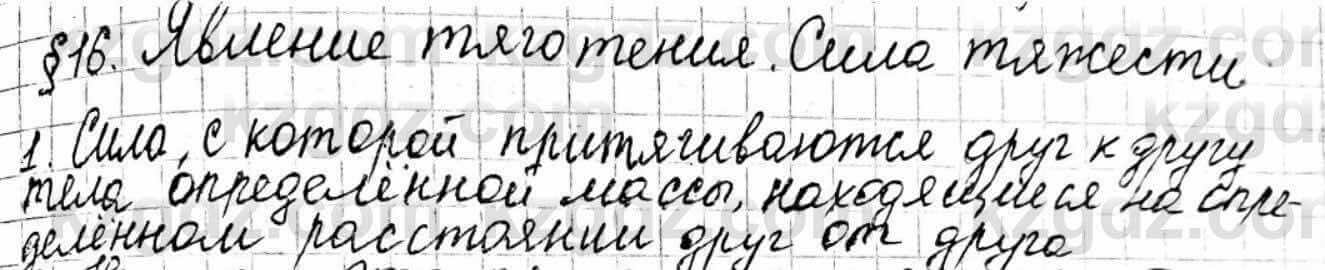 §16. Явление тяготения. Сила тяжести.
1. Сила, с которой притягиваются друг к другу
тела определённой массы, находящиеся на опре-
делённом расстоянии друг от друга